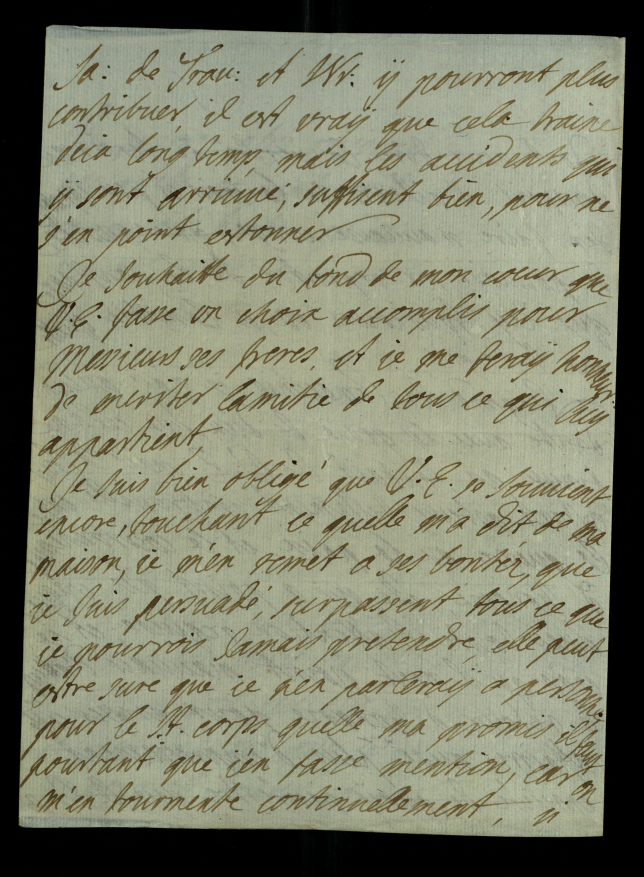 Sa: de Trau: et Wr: ÿ pourront plus
contribuer, il est vraÿ que cela traine
deia long temp, mais les accidents qui
ÿ sont arrivué, suffisent bien, pour ne
s'en point estonner
Je souhaitte du fond de mon coeur que
V.E. fasse un choix accomplis pour
Messieurs ses freres, et ie me feraÿ honneur
de meriter lamitie de tous ce qui luÿ
appartient,
Je suis bien obligé que V.E. se souvient
encore, touchant ce quelle m'a dit de ma
maison, ie m'en remet a ses bontéz, que
ie suis persuadé, surpassent tous ce que
ie pourrois Jamais pretendre, elle peut
estre sure que ie n'en parleraÿ a personne
pour le St. corps quelle ma promis il faut
pourtant que i'en fasse mention, car on
m'en tourmente continuellement, si